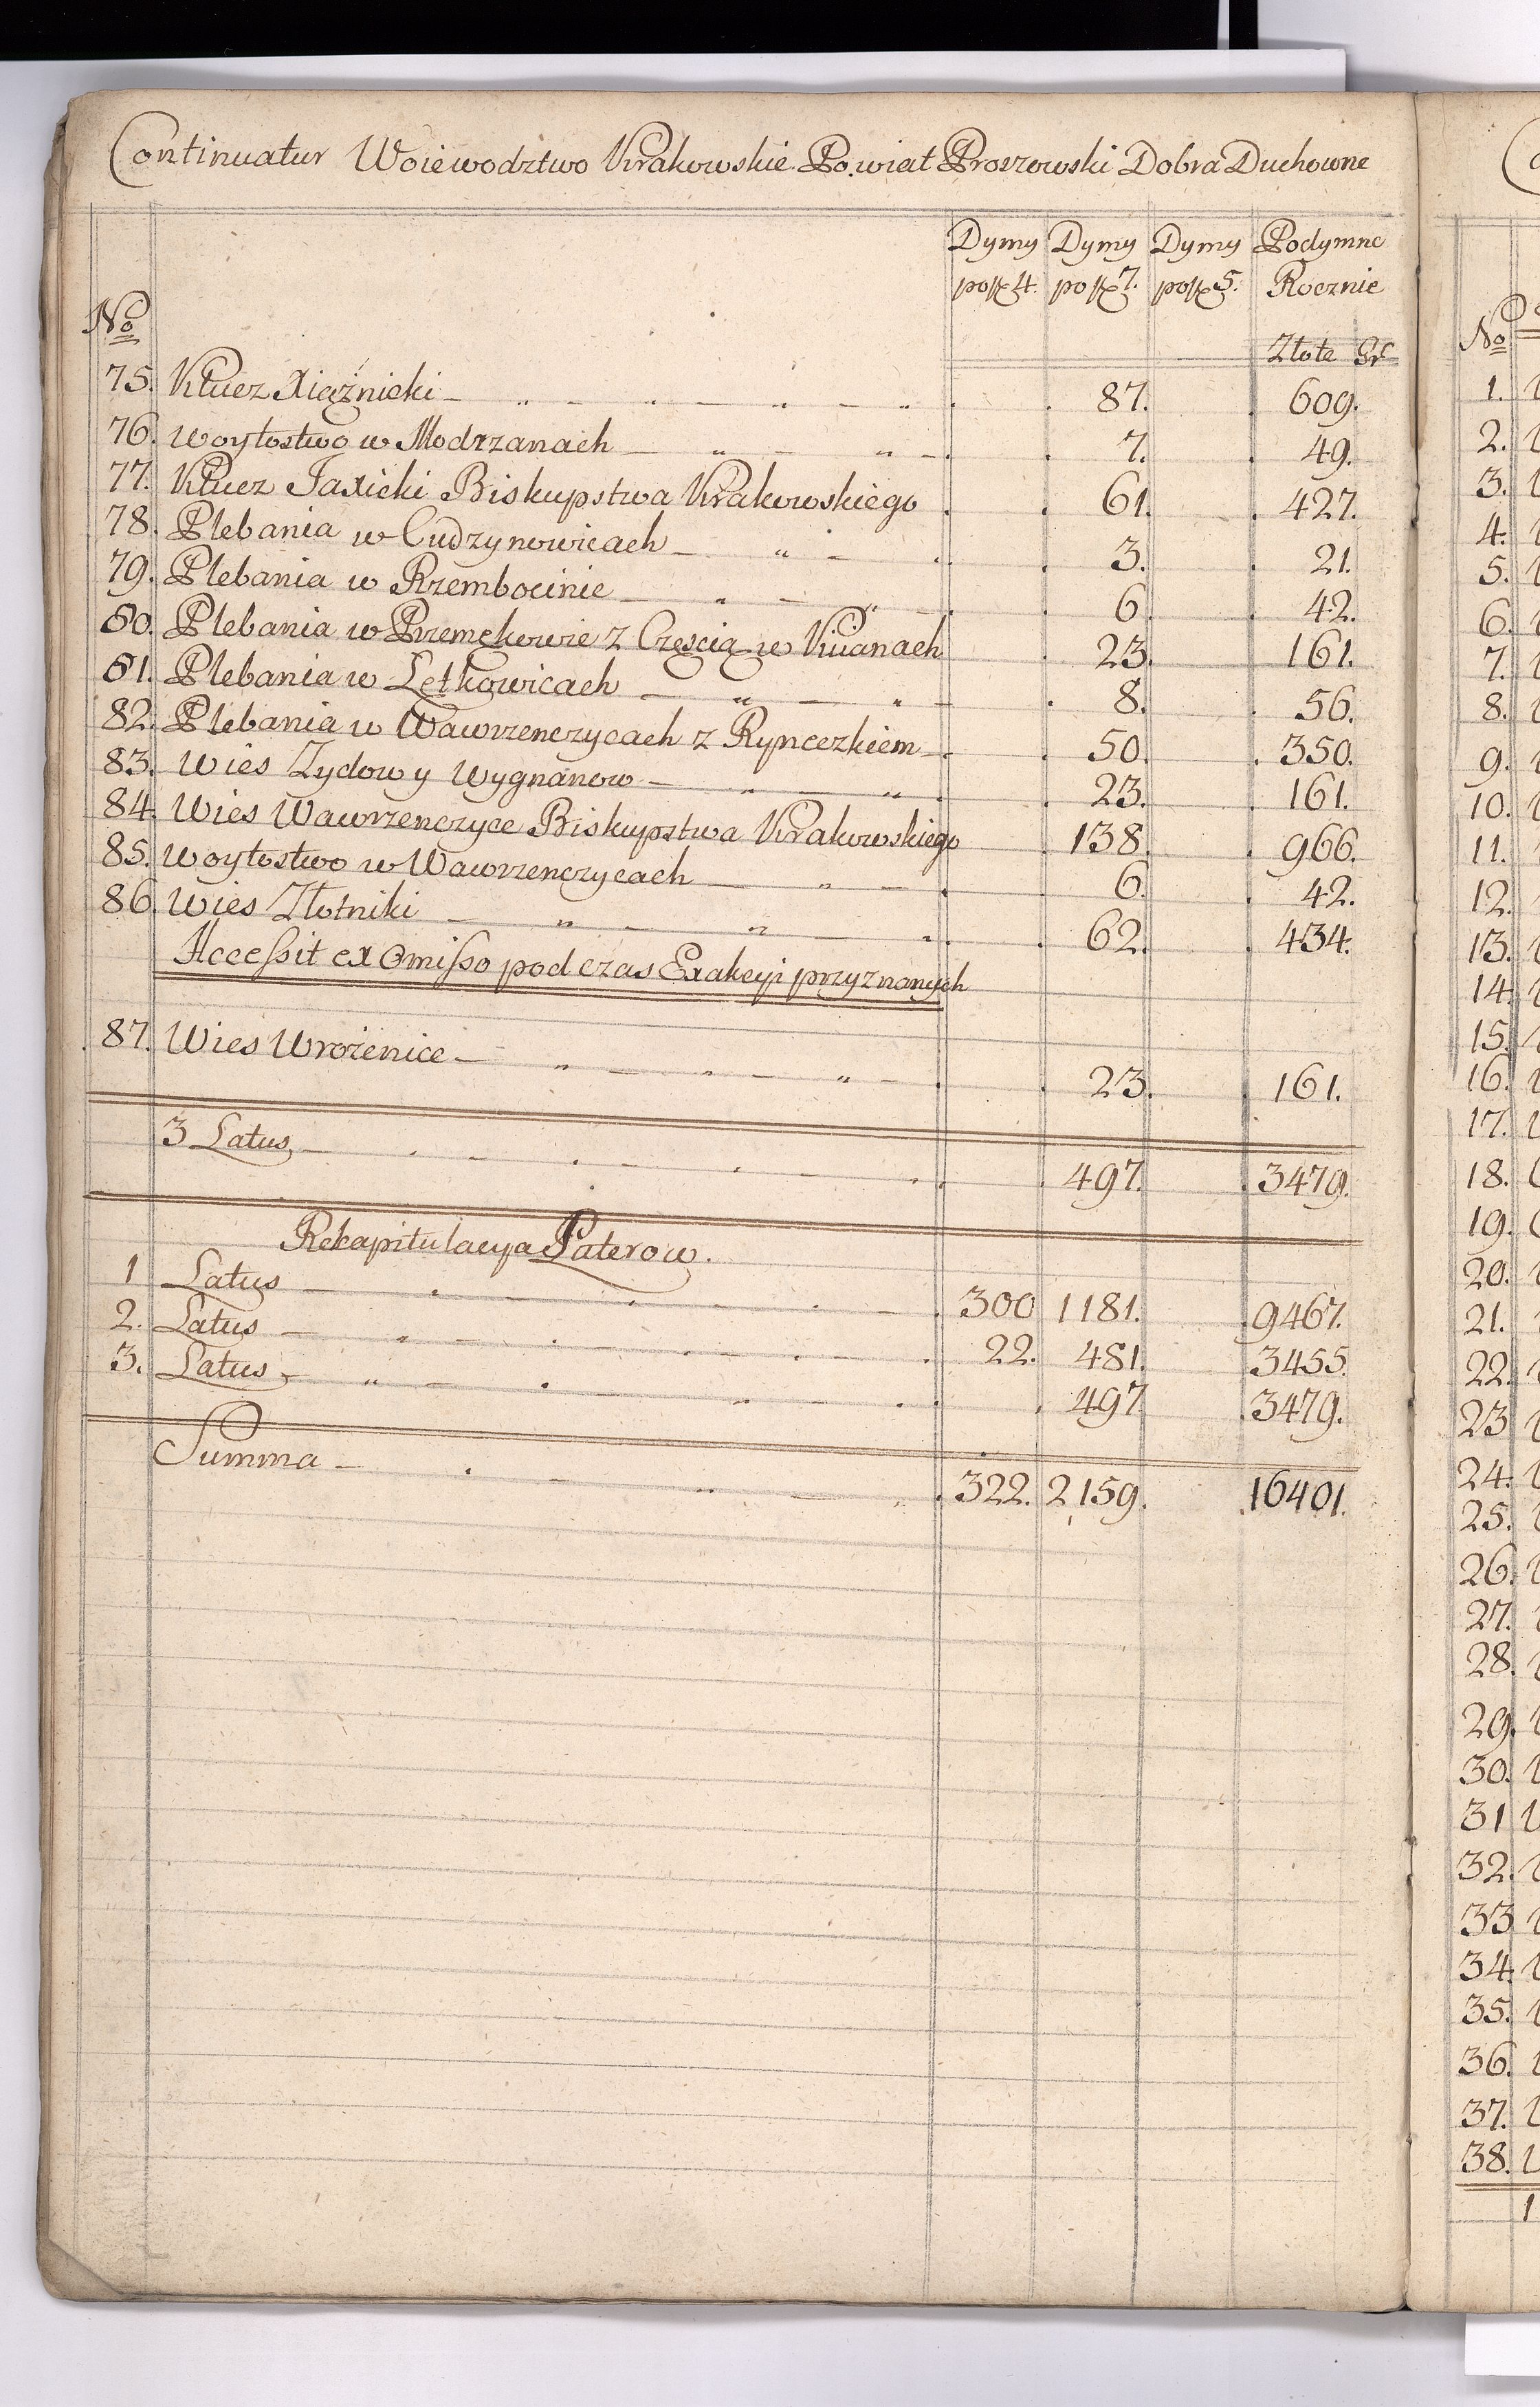 Continuatur Woiewodztwo Krakowskie Powiat Proszowski Dobra Duchowne
Dymy Dymy Dymy Podymne
4. 7. 5. Rocznie
No
Złote Gr
75. Klucz Xiąźnicki 87. 609.
76. Woytostwo w Modrzanach 7. 49.
77. Klucz Jaxicki Biskupstwa Krakowskiego 61. 427.
78. Plebania w Cudzynowicach 3. 21.
79. Plebania w Rzembocinie 6 42.
80. Plebania w Przemękowie z Częscią w 23. 161.
81. Plebania w Lętkowicach 8. 56.
82. Plebania w Wawrzenczycach z Rynczkiem 50. 350.
83. Wies Zydow y Wygnanow 23. 161.
84. Wies Wawrzenczyce Biskupstwa Krakowskiego 138. 966.
85. Woytostwo w Wawrzenczycach 6. 42.
86. Wies Złotniki 62. 434.
Accessit ex Omisso podczas Exakcyi przyznanych
87. Wies Wrożenice 23. 161.
3 Latus 497. 3479.
Rekapitulacya Laterow.
1 Latus 300 1181. 9467.
2. Latus 22. 481. 3455.
3. Latus 497 3479.
Summa 322. 2159. 16401.
No
1.
2.
3.
4.
5.
6.
7.
8.
9.
10.
11.
12.
13.
14.
15.
16.
17.
18.
19.
20.
21.
22.
23
24.
25.
26.
27.
28.
29.
30.
31
32.
33
34.
35.
36.
37.
38.